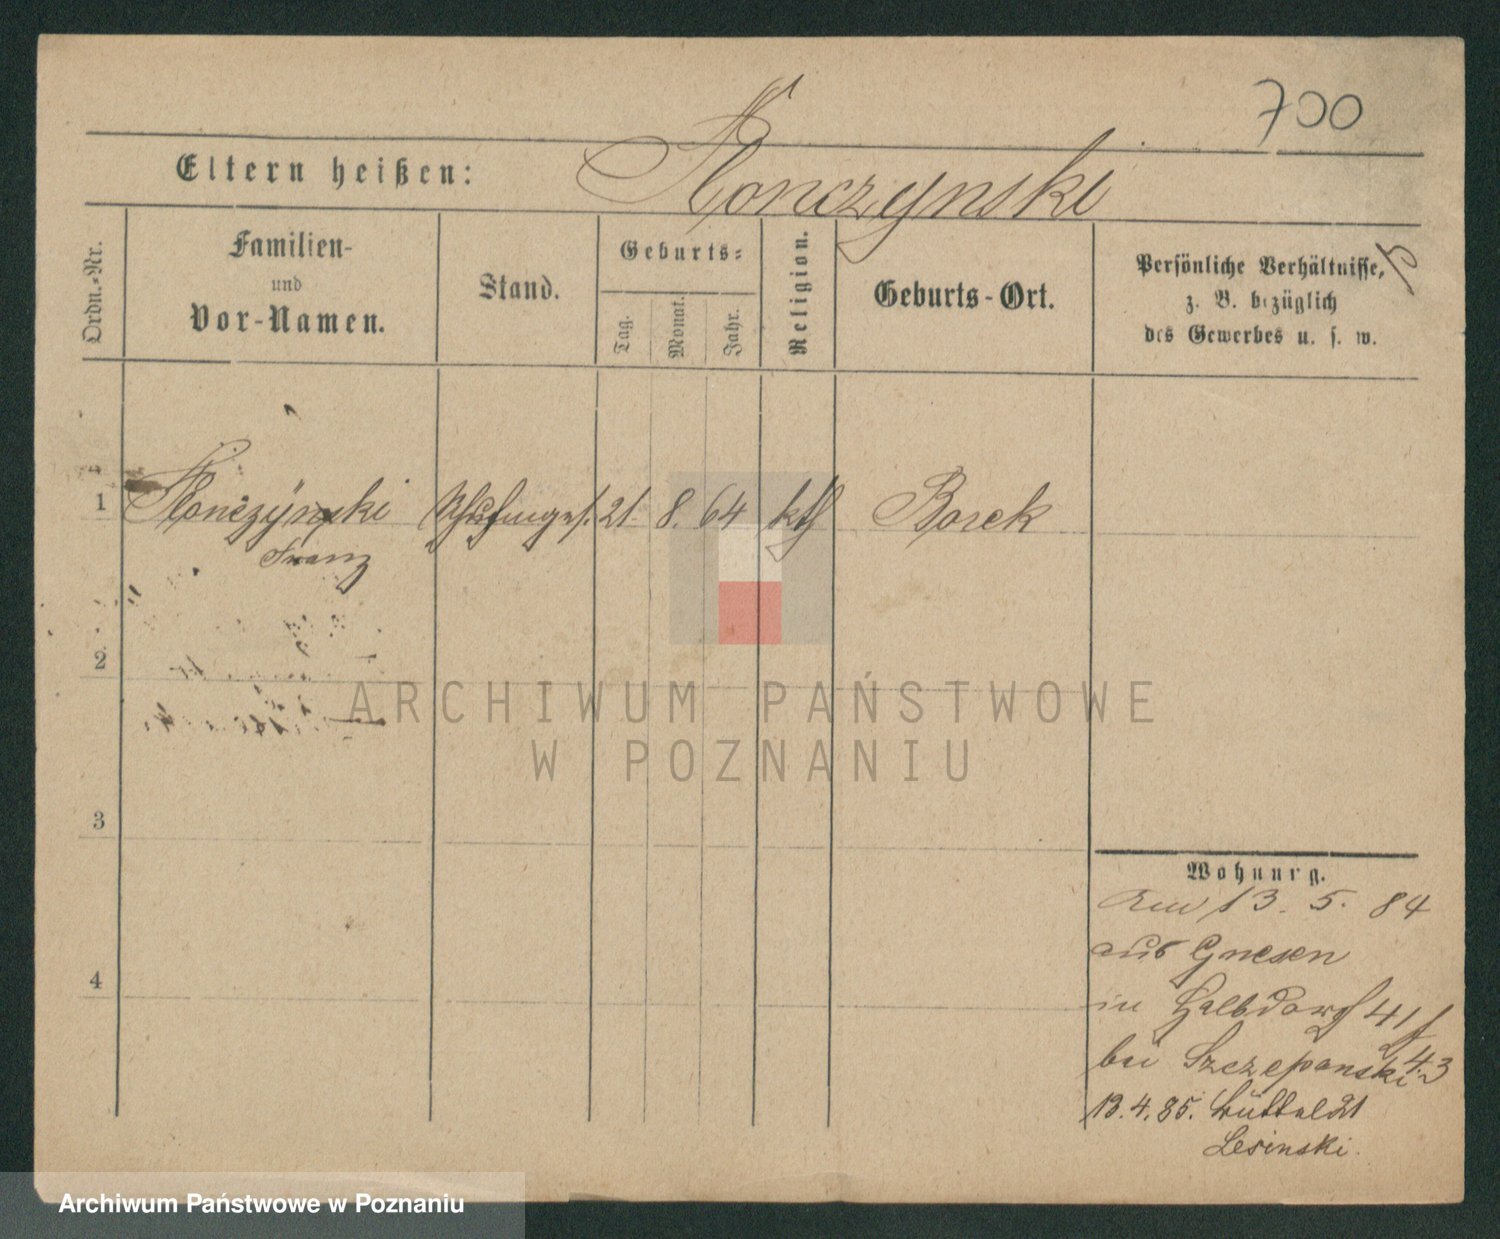 700
Eltern heißen: Konczynski
Ordn.-Nr.
Familien-
und
Vor-Namen.
Stand.
Geburts-
Tag.
Monat.
Jahr.
Religion.
Geburts-Ort.
Persönliche Verhältnisse,
z. B. bezüglich
des Gewerbes u. s. w.
1 Konczynski 21. 8. 64 kth Borek
Franz
2
3
4
Wohnung.
Am 13. 5. 84
aus Gnesen
in Halbdorf 41/43
bei Szczepanski
13.4.85. Büttel 21
Lesinski.
ARCHIWUM PAŃSTWOWE
W POZNANIU
Archiwum Państwowe w Poznaniu